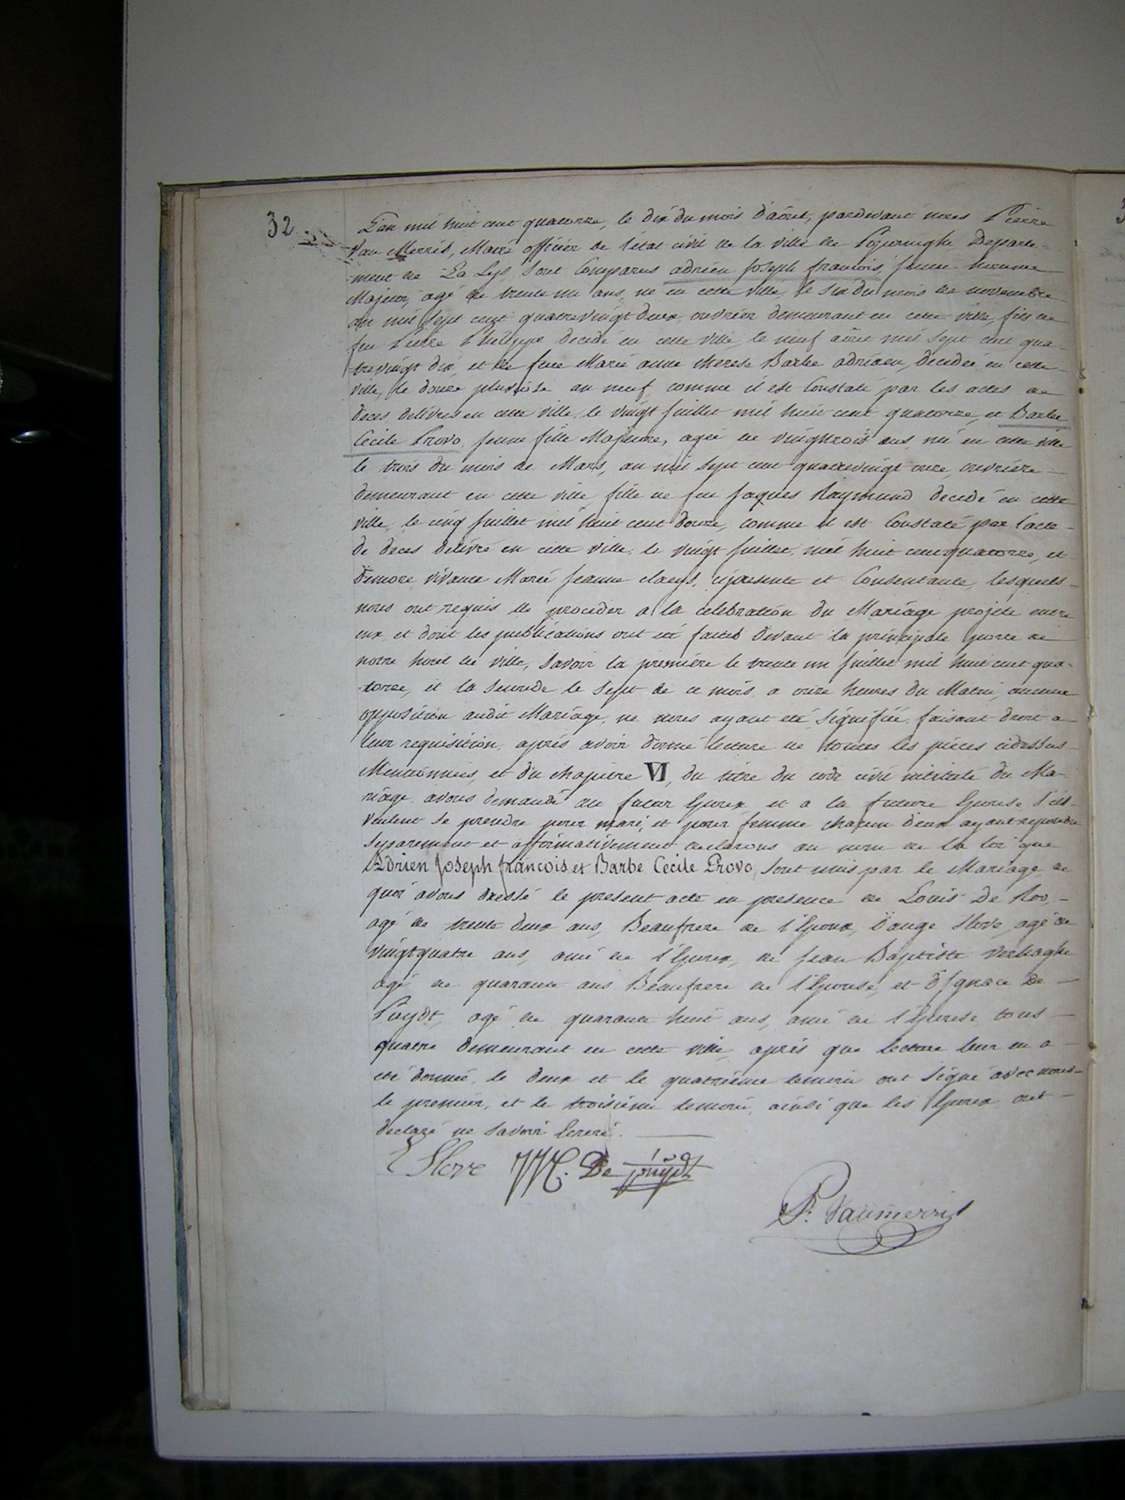 32
L'an mil huit cent quatorze, le dix du mois d'aôut, pardevant nous Pierre
Van Merris, Maire officier de l'état civil de la ville de Poperinghe Departe-
ment de La Lys, sont Comparus adrien Joseph francois, jeune homme
Majeur, agé de trente un ans, né en cette ville, le six du mois de novembre
an mil sept cent quatrevingt deux, ouvrier demeurant en cette ville, fils de
feu Pierre Philippe decedé en cette ville le neuf aôut mil sept cent qua-
trevingt dix, et de feue Marie anne therese Barbe adriaen, decedée en cette
ville, le douze pluviôse an neuf comme il est Constaté par les actes de
deces delivrés en cette ville, le vingt juillet mil huit cent quatorze, et Barbe
Cecile Provo, jeune fille Majeure, agée de vingttrois ans, née en cette ville
le trois du mois de Mars, an mil sept cent quatrevingt onze, ouvrière
demeurant en cette ville fille de feu Jaques Raymund decedé en cette
ville, le cinq juillet mil huit cent douze, comme il est Constaté par l'acte
de deces delivré en cette ville, le vingt juillet, mil huit cent quatorze, et
demore vivance Marie Jeanne Claeys, ci présente et Consentante, lesquels
nous ont requis de proceder a la celebration du Mariage projeté entre
eux et dont les publications ont été faites devant la principale porte de
notre hotel de ville, Savoir la première le trente un juillet mil huit cent qua-
torze, et la seconde le Sept de ce mois, a onze heures du Matin, aucune
opposition audit Mariage, ne nous ayant été signifiée, faisant droit a
leur requisition, après avoir donné lecture de toutes les pièces cidessus
Mentionnées et du chapitre VI, du titre du code civil intitulé du Ma-
riage, avons demandé au futur Epoux et a la future Epouse s'ils
veulent se prendre pour mari, et pour femme chacun d'eux ayant repondu
separement et affirmativement declarons au nom de la loi que
Adrien Joseph francois et Barbe Cecile Provo, sont unis par le Mariage de
quoi avons dressé le present acte en presence de Louis De Roo,
agé de trente deux ans, Beaufrere de l'Epoux, d'ange Hove, agé de
vingtquatre ans, ami de l'Epoux, de Jean Baptiste Verhaghe
agé de quarante ans Beaufrere de l'Epouse, et d'Ignace De
Puydt, agé de quarante huit ans, ami de l'Epouse tous
quatre demeurant en cette ville, après que lecture leur en a
été donnée, le deux et le quatrième temoin ont signé avec nous
le premier, et le troisième temoin, ainsi que les Epoux ont
declaré ne savoir Ecrire.
De puydt
P. Vanmerris